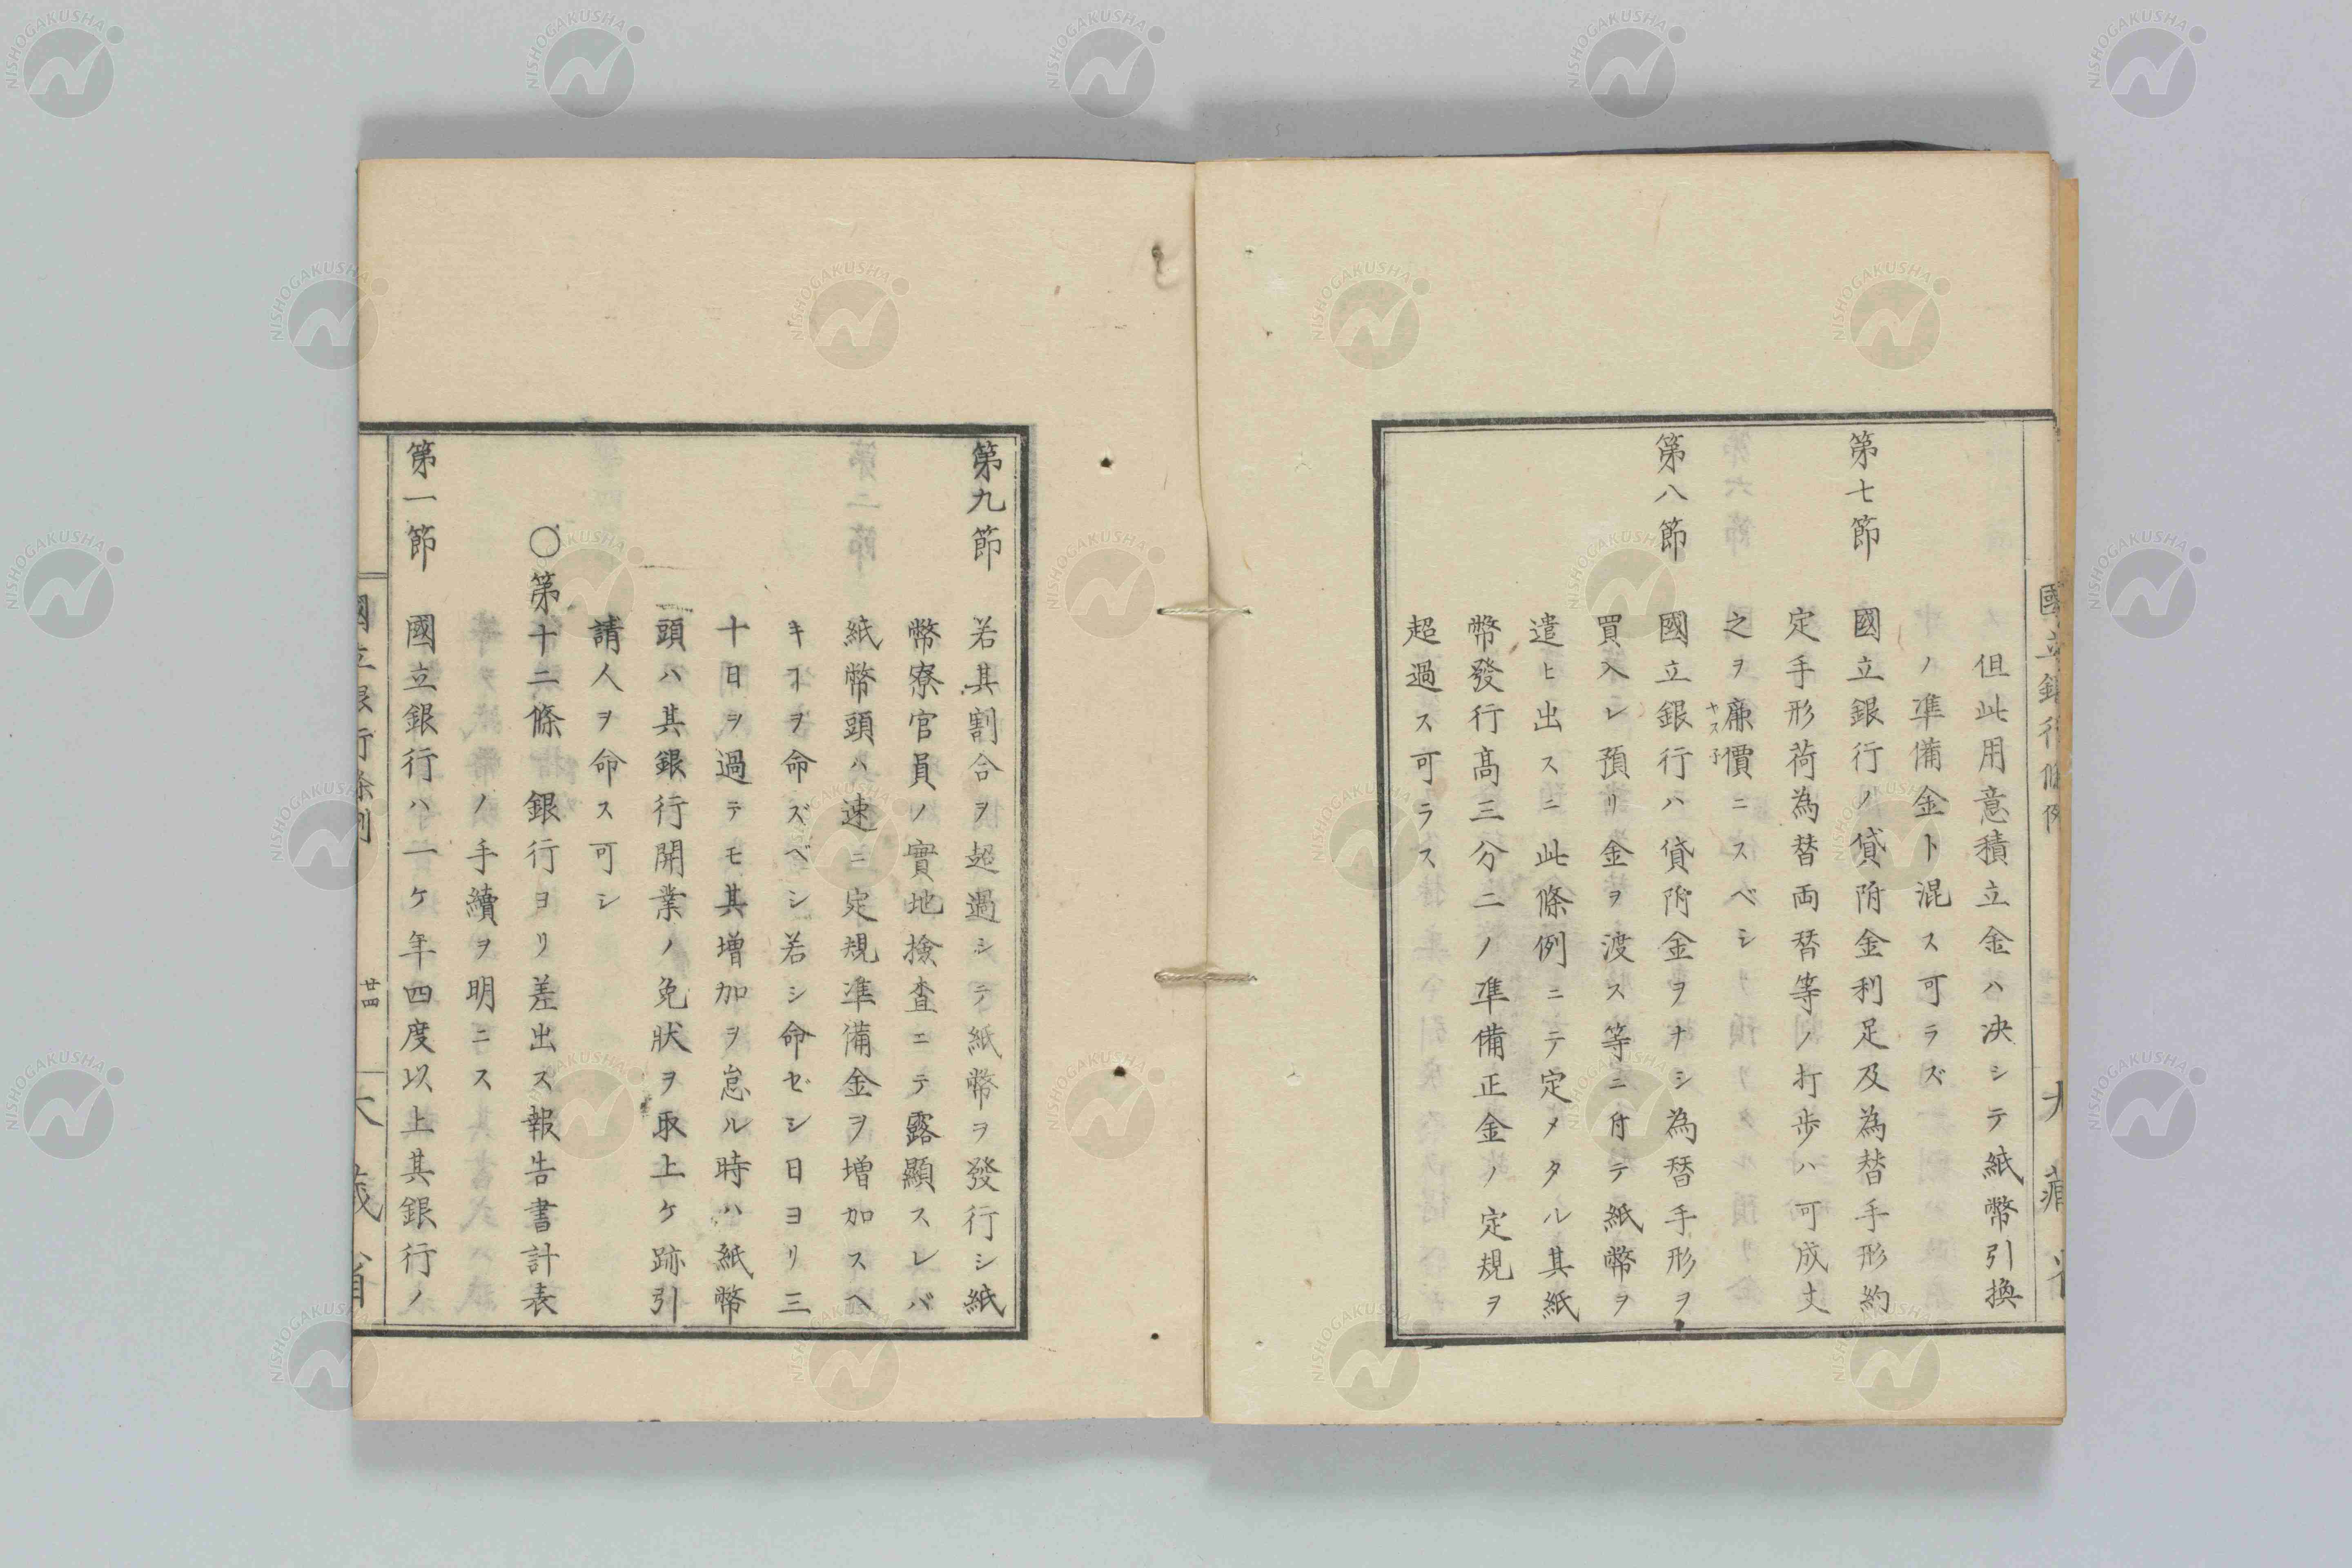 但此用意積立金ハ决シテ紙幣引換
ノ準備金ト混ス可ラズ
第七節 國立銀行ノ貸附金利足及為替手形約
定手形荷為替両替等ノ打歩ハ可成丈
之ヲ廉價ニスベシ
第八節 國立銀行ハ貸附金ヲナシ為替手形ヲ
買入レ預リ金ヲ渡ス等ニ付テ紙幣ヲ
遣ヒ出スニ此條例ニテ定メタル其紙
幣發行高三分二ノ準備正金ノ定規ヲ
超過ス可ラス
第九節 若其割合ヲ超過シテ紙幣ヲ發行シ紙
幣寮官員ノ實地撿査ニテ露顯スレバ
紙幣頭ハ速ニ定規準備金ヲ増加スヘ
キヿヲ命ズベシ若シ命ゼシ日ヨリ三
十日ヲ過テモ其増加ヲ怠ル時ハ紙幣
頭ハ其銀行開業ノ免状ヲ取上ケ跡引
請人ヲ命ス可シ
〇第十二條 銀行ヨリ差出ス報告書計表
ノ手續ヲ明ニス
第一節 國立銀行ハ一ケ年四度以上其銀行ノ
國立銀行條例
廿四
NISHOGAKUSHA